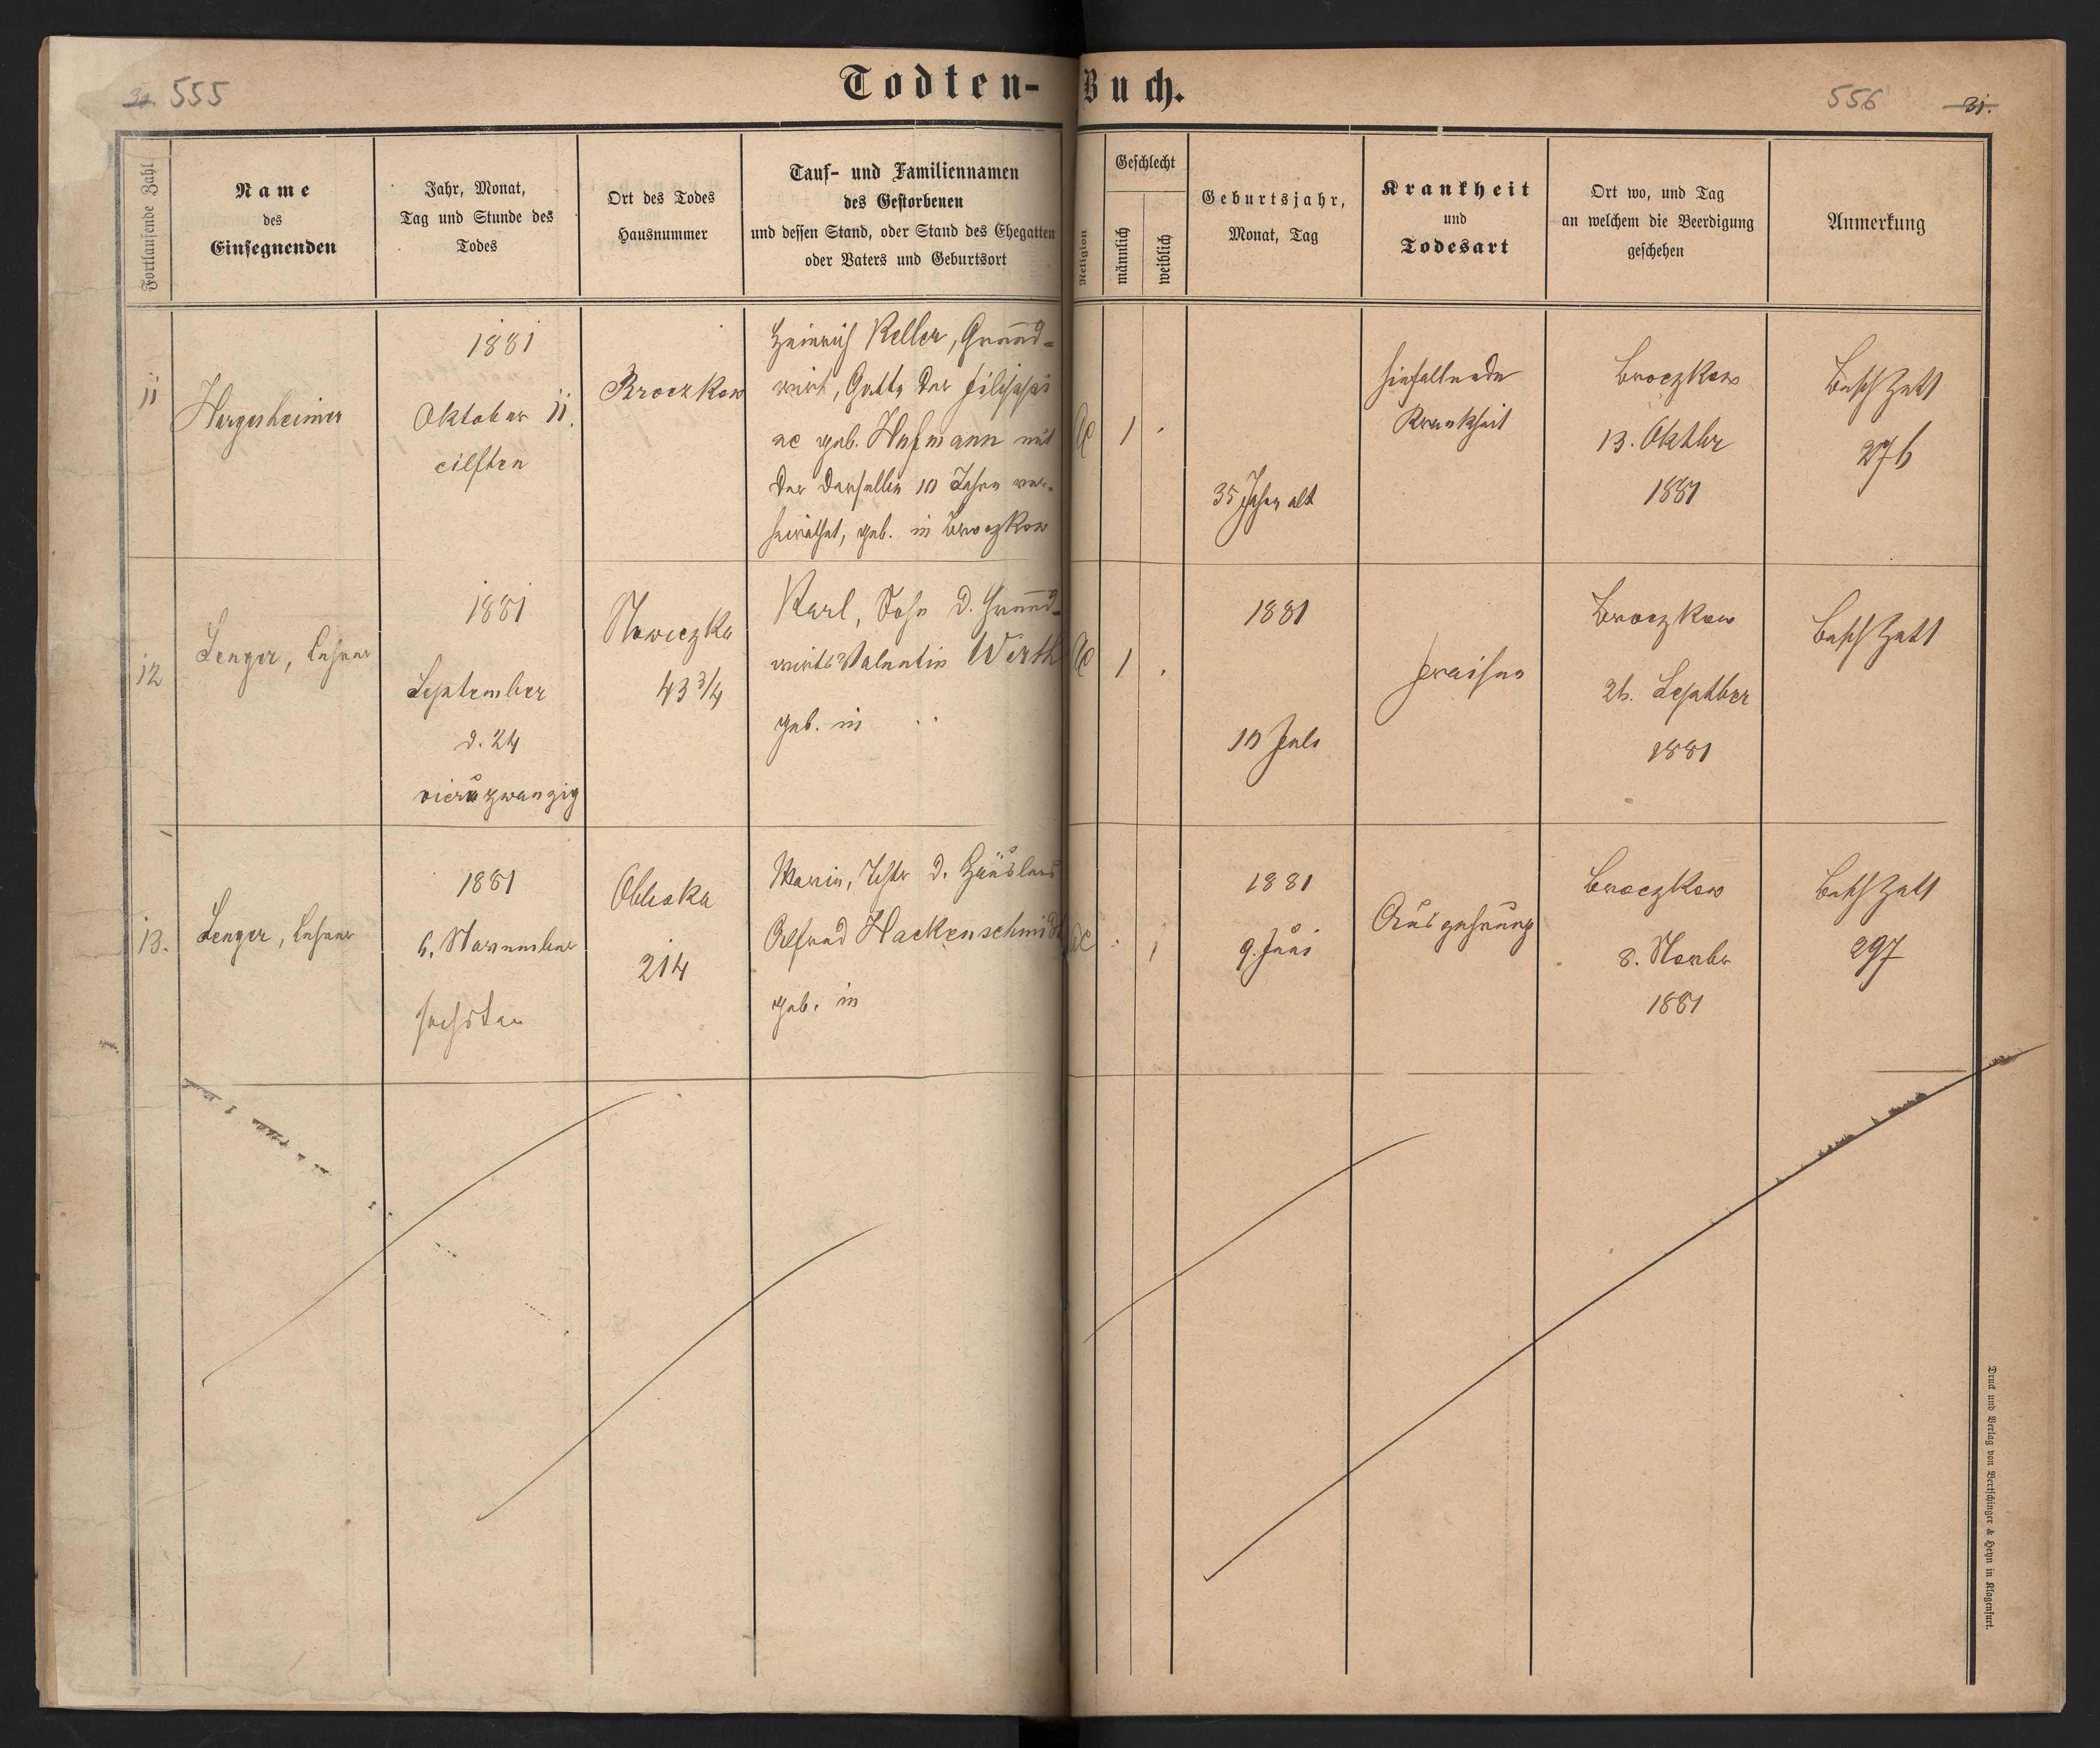 31. 555
Todten-Buch.
556 31.
Fortlaufende Zahl
Name
des
Einsegnenden
Jahr, Monat,
Tag und Stunde des
Todes
Ort des Todes
Hausnummer
Tauf- und Familiennamen
des Gestorbenen
und dessen Stand, oder Stand des Ehegatten
oder Vaters und Geburtsort
Religion
Geschlecht
männlich
weiblich
Geburtsjahr,
Monat, Tag
Krankheit
und
Todesart
Ort wo, und Tag
an welchem die Beerdigung
geschehen
Anmerkung
11
Hargesheimer
1881
Oktober 11.
eilften
Broczkow
Heinrich Keller, Grund-
wirt, Gatte der Filippi
ac geb. Hofmann mit
der derselben 10 Jahre ver-
heirathet, geb. in Broczkow
AC
1
.
35 Jahre alt
hinfallende
Krankheit
Broczkow
13. Oktbr
1881
BeschZett
276
12
Lenger, Lehrer
1881
September
d. 24
vieruzwanzig
Nowiczka
43 3/4
Karl, Sohn d. Grund-
wirts Valentin Wirth
geb. in
AC
1
.
1881
10 Juli
Fraisen
Broczkow
26. Septber
1881
BeschZett
13.
Lenger, Lehrer
1881
6. November
sechsten
Obliska
214
Maria, Tchtr d. Häuslers
Alfred Hackenschmidt
geb. in
AC
.
1
1881
9. Juni
Auszehrung
Broczkow
8. Novbr
1881
BeschZett
297
Druck und Verlag von Bertschinger & Heyn in Klagenfurt.